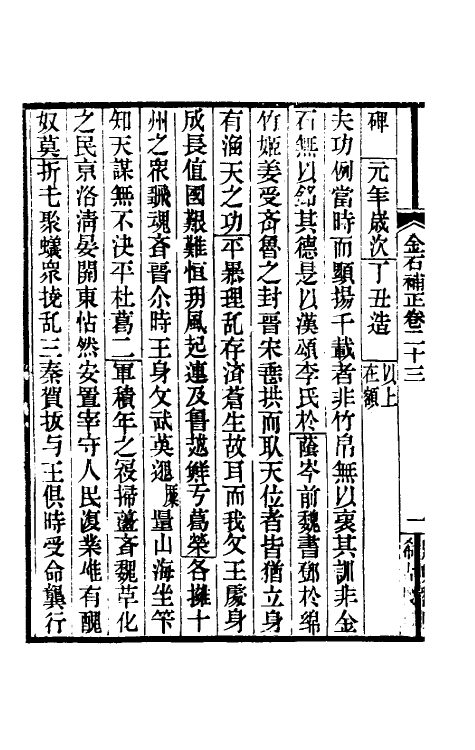 金石補正卷二十三
一
碑　元年歲次丁丑造　以上在額
夫功例當時而顯揚千載者非竹帛無以裒其訓非金
石無以銘其德是以漢頌李氏於蔭岑前魏書鄧於綿
竹姬姜受斉魯之封晉宋垂拱而取天位者皆猶立身
有濔天之功平暴理乱存濟蒼生故耳而我文王慶身
成長值國艱難恒朔風起連及魯越鮮亏葛榮各擁十
州之眾飈魂斉晉尒時王身文武英邈廪量山海坐筞
知天謀無不決平杜葛二軍積年之祲掃蘯斉魏草化
之民京洛淸晏開東怗然安置宰守人民復業唯有醜
奴莫折七聚蟻衆撓乱三秦賀拔与王俱時受命龔行